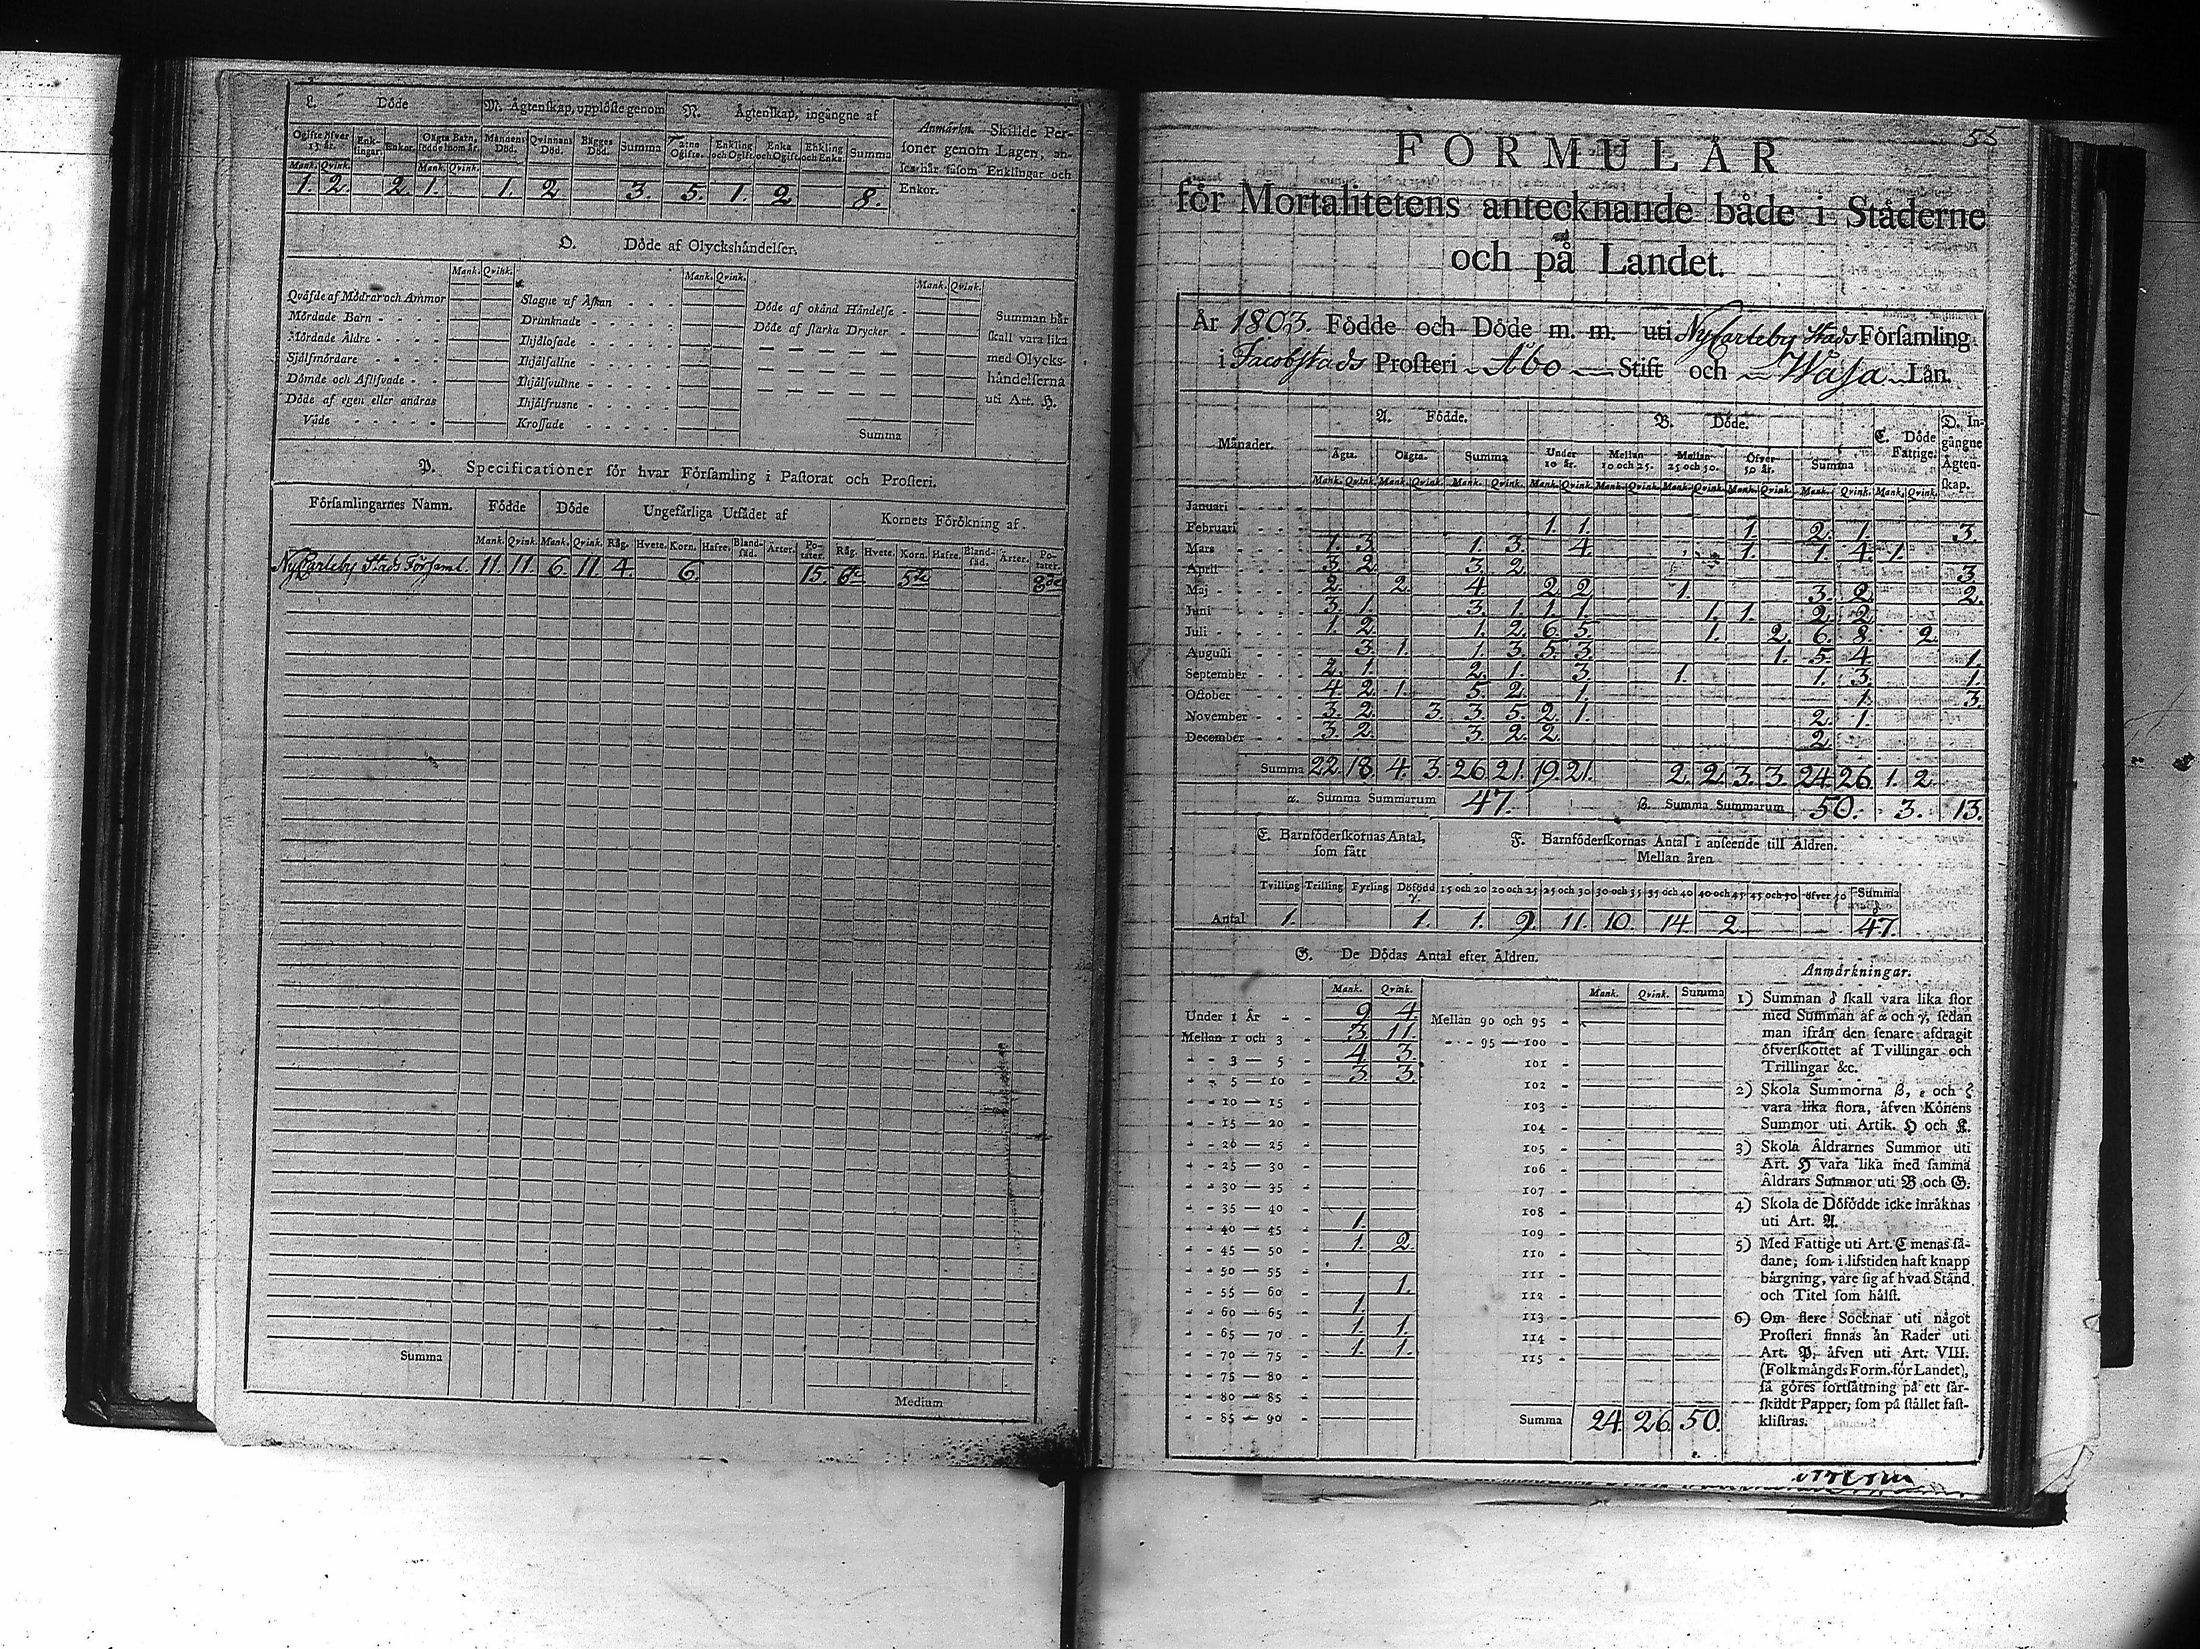 L. Döde
M. Ägtenskap, upplöste genom
N. Ägtenskap, ingångne af
Anmärkn. Skillde Per-
soner genom Lagen, an-
ses här såsom Enklingar och
Enkor.
Ogifte öfver 15 år. Enk-lingar. Enkor. Oägta Barn, födde inom år. Mannens Död. Qvinnans Död. Bägges Död. Summa Ogifte. Enkling och Ogift. Enka och Ogift. Enkling och Enka. Summa
Mank. Qvink. Mank. Qvink.
1. 2. 2. 1. 1. 2 3. 5. 1. 2 8.
O. Döde af Olyckshändelser.
Mank. Qvink. Mank. Qvink. Mank. Qvink.
Qväfde af Mödrar och Ammor
Mördade Barn
Mördade Äldre
Själfmördare
Dömde och Aflifvade
Döde af egen eller andras
Våde
Slagne af Åskan
Drunknade
Ihjälfrusne
Krossade
Döde af okänd Händelse
Döde af starka Drycker
Summa
Summan här
skall vara lika
med Olycks-
händelserna
uti Art. H.
P. Specificationer för hvar Församling i Pastorat och Prosteri.
Församlingarnes Namn. Födde Döde Ungefärliga Utsädet af Kornets Förökning af
Mank. Qvink. Mank. Qvink. Råg. Hvete. Korn. Hafre. Bland-säd. Ärter. Po-tater. Råg. Hvete. Korn. Hafre. Bland-säd. Ärter. Po-tater.
NyCarleby Stads Församl. 11. 11. 6. 11. 4. 6. 15.
Summa
Medium
55
FORMULÄR
för Mortalitetens antecknande både i Städerne
och på Landet.
År 1803. Födde och Döde m. m. uti NyCarleby Stads Församling
i Jacobstads Prosteri Åbo Stift och Wasa Län.
Månader. A. Födde. B. Döde. C. Döde Fattige. D. In-gångne Ägten-skap.
Ägta. Oägta. Summa Under 10 år. Mellan 10 och 25. Mellan 25 och 50. Öfver 50 år. Summa
Mank. Qvink. Mank. Qvink. Mank. Qvink. Mank. Qvink. Mank. Qvink. Mank. Qvink. Mank. Qvink. Mank. Qvink. Mank. Qvink.
Januari
Februari 1. 1. 1. 2. 1. 3.
Mars 1. 3. 1. 3. 4. 1. 1. 4. 1.
April 3. 2. 3. 2. 3.
Maj 2. 2. 4. 2. 2. 1. 3. 2. 2.
Juni 3. 1. 3. 1. 1. 1. 1. 1. 2. 2.
Juli 1. 2. 1. 2. 6. 5. 1. 2. 6. 8. 2.
Augusti 3. 1. 1. 3. 5. 3. 1. 5. 4. 1.
September 2. 1. 2. 1. 3. 1. 1. 3. 1.
October 4. 2. 1. 5. 2. 1. 1. 3.
November 3. 2. 3. 3. 5. 2. 1. 2. 1.
December 3. 2. 3. 2. 2. 2.
Summa 22. 18. 4. 3. 26. 21. 19. 21. 2. 2. 3. 3. 24. 26. 1. 2.
α. Summa Summarum 47. β. Summa Summarum 50. 3. 13.
E. Barnföderskornas Antal,
som fått
F. Barnföderskornas Antal i anseende till Åldren.
Mellan åren
Tvilling Trilling Fyrling Dödfödd γ. 15 och 20 20 och 25 25 och 30 30 och 35 35 och 40 40 och 45 45 och 50 öfver 50 Summa δ.
Antal 1. 1. 1. 9. 11. 10. 14 2 47.
G. De Dödas Antal efter Åldren.
Mank. Qvink. Mank. Qvink. Summa
Under 1 År 9 4.
Mellan 1 och 3 3. 11.
3 — 5 4. 3.
5 — 10 3. 3.
10 — 15
15 — 20
20 — 25
25 — 30
30 — 35
35 — 40
40 — 45 1.
45 — 50 1. 2.
50 — 55
55 — 60 1.
60 — 65 1.
65 — 70 1. 1.
70 — 75 1. 1.
75 — 80
80 — 85
85 — 90
Mellan 90 och 95
95 — 100
101
102
103
104
105
106
107
108
109
110
111
112
113
114
115
Summa 24. 26. 50.
Anmärkningar.
1) Summan δ skall vara lika stor
med Summan af α och γ, sedan
man ifrån den senare afdragit
öfverskottet af Tvillingar och
Trillingar &c.
2) Skola Summorna β, ε och ζ
vara lika stora, äfven Könens
Summor uti Artik. H och K.
3) Skola Åldrarnes Summor uti
Art. H vara lika med samma
Åldrars Summor uti B och G.
4) Skola de Döfödde icke inräknas
uti Art. A.
5) Med Fattige uti Art. C menas så-
dane, som i lifstiden haft knapp
bärgning, vare sig af hvad Stånd
och Titel som hälst.
6) Om flere Socknar uti något
Prosteri finnas än Rader uti
Art. P, äfven uti Art. VIII.
(Folkmängds Form. för Landet),
så göres fortsättning på ett sär-
skildt Papper, som på stället fast-
klistras.